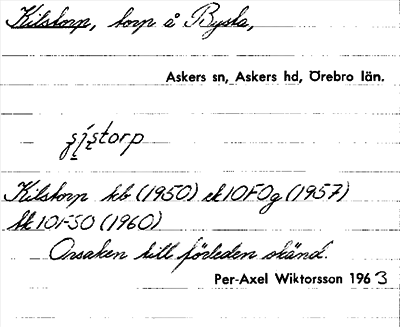 Kilstorp, torp å Bysta,
Askers sn, Askers hd, Örebro län.
Kilstorp kb (1950) ek 10F0g (1957)
tk 10F SO (1960)
Orsaken till förleden okänd.
Per-Axel Wiktorsson 1963